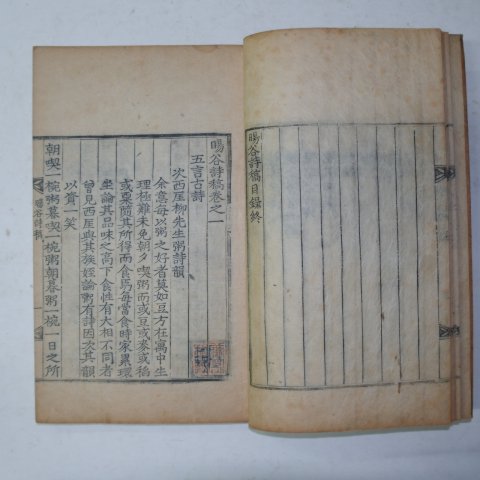 暘谷詩稿目錄終
暘谷詩稿卷之一
五言古詩
次西厓柳先生粥詩韻
余意每以粥之好者莫如豆方在寓中生
理極難未免朝夕喫粥而或豆或麥或稿
或粟隨其所得而食焉每當食時家累環
坐論其品味之高下食性有大相不同者
曾見西厓與其族姪論粥有詩因次其韻
以資一笑
朝喫一椀粥暮喫一椀粥朝暮粥一椀一日之所
暘谷詩稿